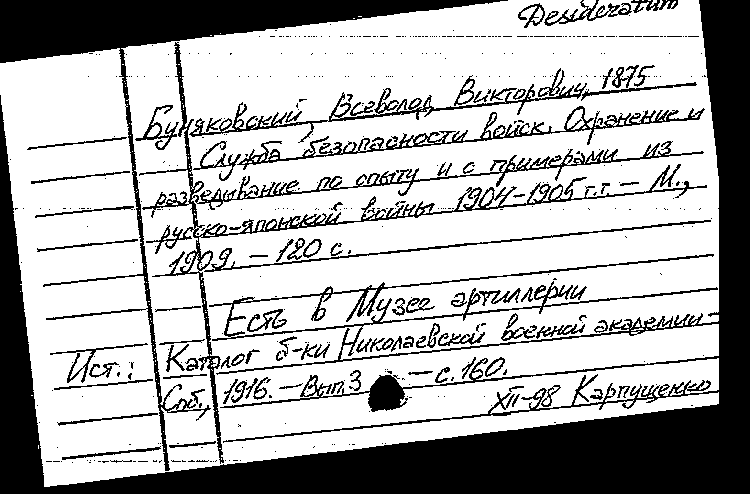 Desideratum
Буняковский, Всеволод Викторович, 1875
Служба безопасности войск. Охранение и
разведывание по опыту и с примерами из
русско-японской войны 1904-1905 г.г. – М.,
1909. – 120 с.
Есть в Музее артиллерии
Ист.: Каталог б-ки Николаевской военной академии –
Спб., 1916. – Вып. 3 – с. 160.
XII-98 Карпущенко